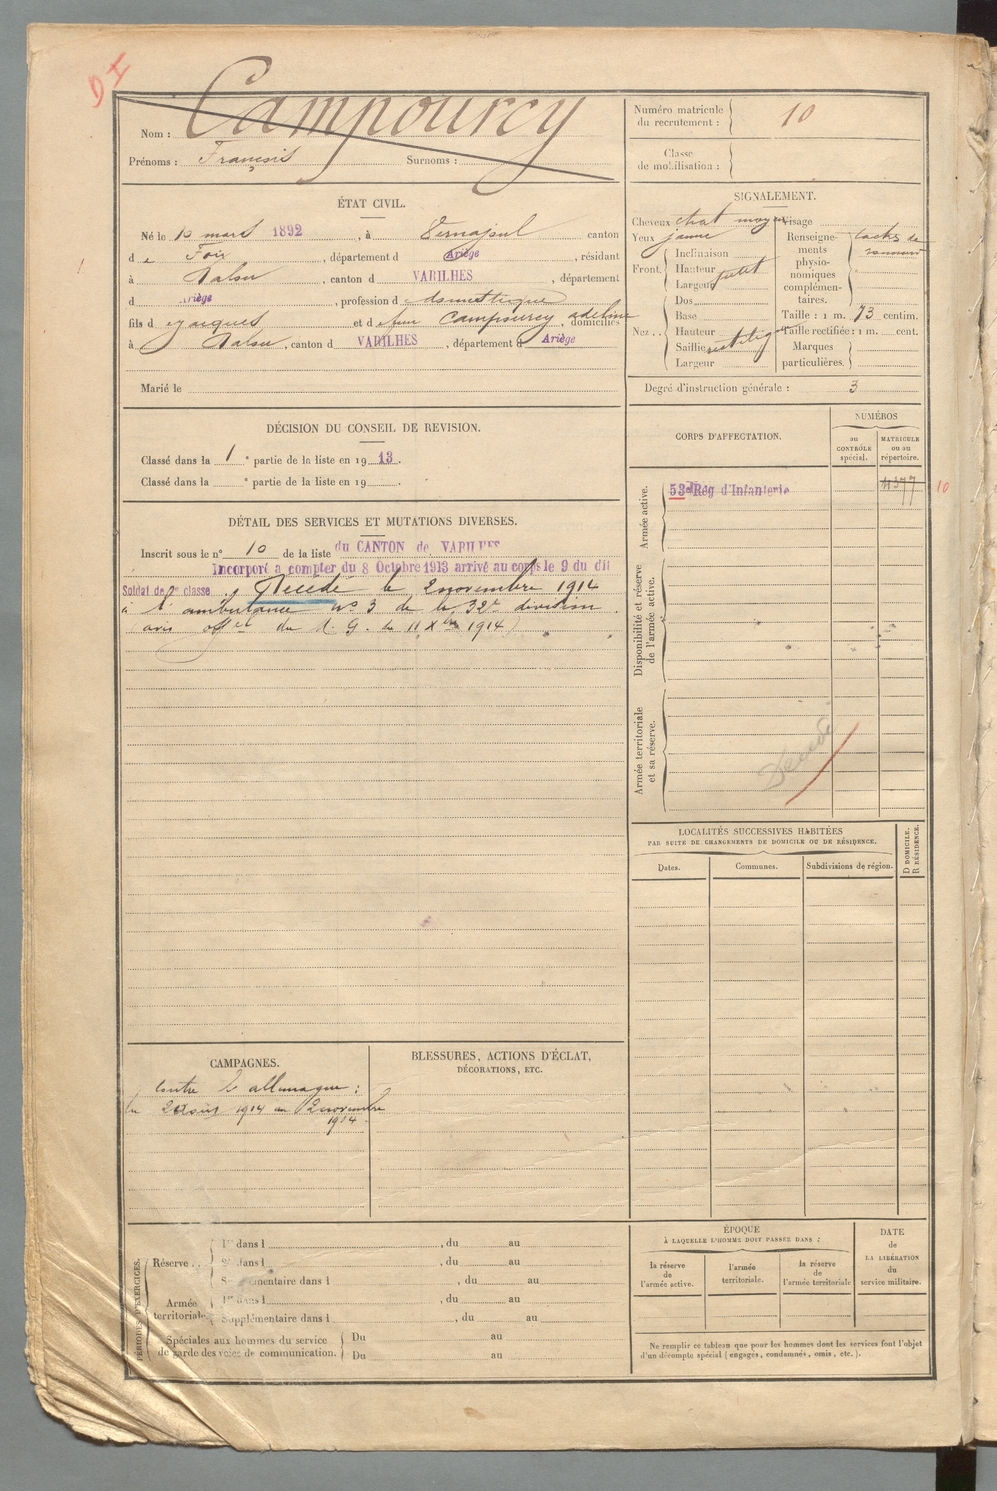 D 4
Nom : Campourcy
Prénoms : François Surnoms :
Numéro matricule du recrutement : 10
Classe de mobilisation :
ÉTAT CIVIL.
Né le 10 mars 1892, à Vernajoul canton
de Foix, département d Ariège, résidant
à Dalou, canton d VARILHES, département
d Ariège, profession d domestique
fils d Jacques et de feu Campourcy adeline, domiciliés
à Dalou, canton d VARILHES, département d Ariège
Marié le
SIGNALEMENT.
Cheveux chat moyen Visage
Yeux jaune
Front. Inclinaison
Hauteur
Largeur petit
Nez.. Dos
Base
Hauteur
Saillie rectilig
Largeur
Renseignements physionomiques complémentaires. taches de
Taille : 1 m. 73 centim.
Taille rectifiée : 1 m. cent.
Marques particulières.
Degré d'instruction générale : 3
DÉCISION DU CONSEIL DE REVISION.
Classé dans la 1e partie de la liste en 1913.
Classé dans la e partie de la liste en 19
CORPS D'AFFECTATION.
NUMÉROS
au CONTRÔLE spécial.
MATRICULE ou au répertoire.
Armée active.
53e Rég d'Infanterie 4377 10
Disponibilité et réserve de l'armée active.
Armée territoriale et sa réserve.
Décédé
DÉTAIL DES SERVICES ET MUTATIONS DIVERSES.
Inscrit sous le n° 10 de la liste du CANTON de VARILHES
Incorporé a compter du 8 Octobre 1913 arrivé au corps le 9 du dit
Soldat de 2e classe. Décédé le 2 novembre 1914
à l'ambulance no 3 de la 32e division.
(avis offel du M. G du 11 Xbre 1914)
LOCALITÉS SUCCESSIVES HABITÉES
PAR SUITE DE CHANGEMENTS DE DOMICILE OU DE RÉSIDENCE.
Dates.
Communes.
Subdivisions de région.
D DOMICILE.
R RÉSIDENCE.
CAMPAGNES.
Contre l'allemagne :
du 2 août 1914 au 2 novembre
1914
BLESSURES, ACTIONS D'ÉCLAT,
DÉCORATIONS, ETC.
PÉRIODES D'EXERCICES.
Réserve.. 1re dans l , du au
2e dans l , du au
Supplémentaire dans l , du au
Armée territoriale. 1re dans l , du au
Supplémentaire dans l , du au
Spéciales aux hommes du service de garde des voies de communication.
Du au
Du au
ÉPOQUE
À LAQUELLE L'HOMME DOIT PASSER DANS :
la réserve de l'armée active.
l'armée territoriale.
la réserve de l'armée territoriale
DATE de LA LIBÉRATION du service militaire.
Ne remplir ce tableau que pour les hommes dont les services font l'objet
d'un décompte spécial (engagés, condamnés, omis, etc.).